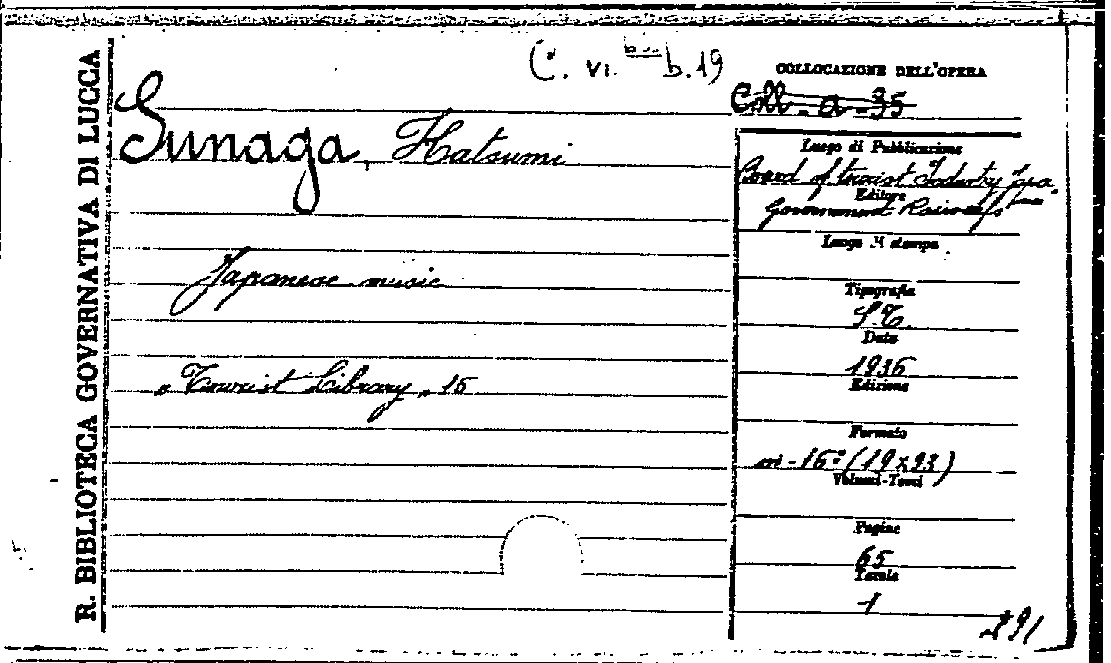 R. BIBLIOTECA GOVERNATIVA DI LUCCA
C. vi. b. 19
COLLOCAZIONE DELL'OPERA
Coll - a - 35
Sunaga, Hatsumi
Japanese music
„ Tourist Library „ 15
Luogo di Pubblicazione
Board of tourist Industry Japa
Editore
Government Railways
Luogo di stampa
Tipografia
S.T.
Data
1936
Edizione
Formato
in-16º (19x23)
Volumi-Tomi
Pagine
65
Tavole
1
291